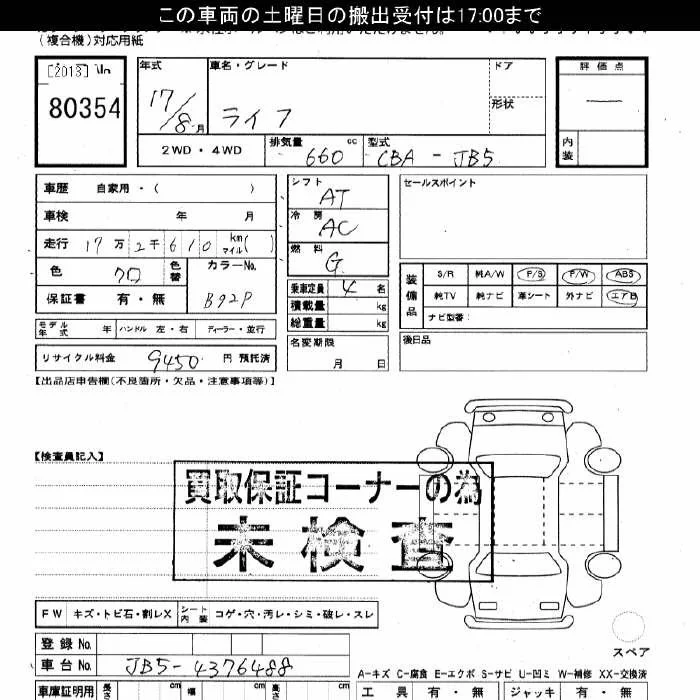 この車両の土曜日の搬出受付は17:00まで
（複合機）対応用紙
[2013]
80354
年式 車名・グレード ドア 評価点
17/8月 ライフ 形状 —
2WD・4WD 排気量 660 cc 型式 CBA - JB5 内装
車歴 自家用・（ ）
車検 年 月
走行 17万2千610 km マイル( )
色 クロ 色替 カラーNo.
保証書 有・無 B92P
モデル年式 年 ハンドル 左・右 ディーラー・並行
リサイクル料金 9450 円 預託済
シフト AT
冷房 AC
燃料 G
乗車定員 4 名
積載量 kg
総重量 kg
名変期限
月 日
セールスポイント
装備品 S/R 純A/W P/S P/W ABS
純TV 純ナビ 革シート 外ナビ エアB
ナビ型番：
後日品
【出品店申告欄(不良箇所・欠品・注意事項等)】
【検査員記入】
買取保証コーナーの為
未検査
FW キズ・トビ石・割レX シート内装 コゲ・穴・汚レ・シミ・破レ・スレ
スペア
登録No.
車台No. JB5-4376488
A-キズ C-腐食 E-エクボ S-サビ U-凹ミ W-補修 XX-交換済
車庫証明用 長さ cm 幅 cm 高さ cm
工具 有・無 ジャッキ 有・無